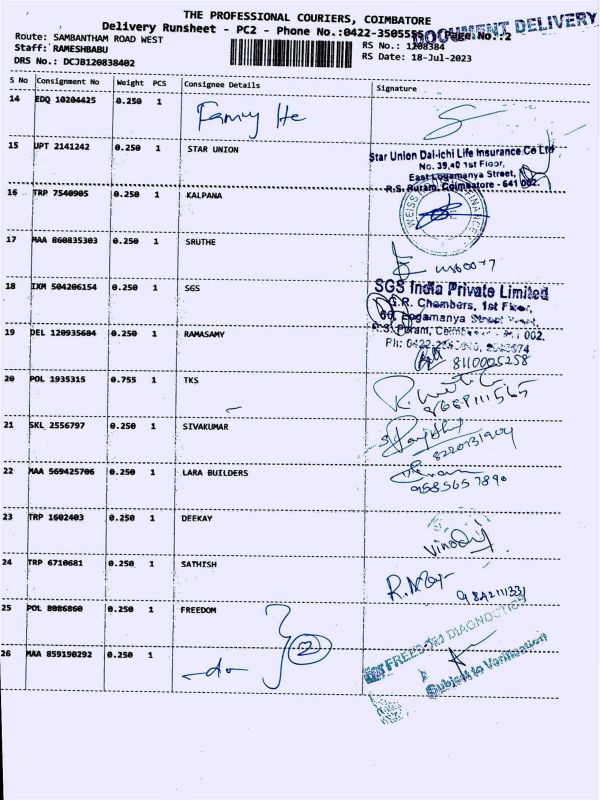 THE PROFESSIONAL COURIERS, COIMBATORE
Delivery Runsheet - PC2 - Phone No.:0422-3505555 Page No.:2
DOCUMENT DELIVERY
Route: SAMBANTHAM ROAD WEST RS No.: 1208384
Staff: RAMESHBABU RS Date: 18-Jul-2023
DRS No.: DCJB120838402
S No Consignment No Weight PCS Consignee Details Signature
14 EDQ 10204425 0.250 1
15 UPT 2141242 0.250 1 STAR UNION
Star Union Dai-ichi Life Insurance Co Ltd
No. 39,40 1st Floor,
East Logamanya Street,
R.S. Puram, Coimbatore - 641 002.
16 TRP 7540905 0.250 1 KALPANA
17 MAA 860835303 0.250 1 SRUTHE
18 IXM 504206154 0.250 1 SGS
SGS India Private Limited
G.R. Chambers, 1st Floor,
Logamanya Street
R.S. Puram, 002.
Ph: 0422-
19 DEL 120935684 0.250 1 RAMASAMY
8110005258
20 POL 1935315 0.755 1 TKS
21 SKL 2556797 0.250 1 SIVAKUMAR
22 MAA 569425706 0.250 1 LARA BUILDERS
9585657890
23 TRP 1602403 0.250 1 DEEKAY
24 TRP 6710681 0.250 1 SATHISH
25 POL 8086860 0.250 1 FREEDOM
2
26 MAA 859190292 0.250 1 -do-
DIAGNOSTIC
Subject to Verification